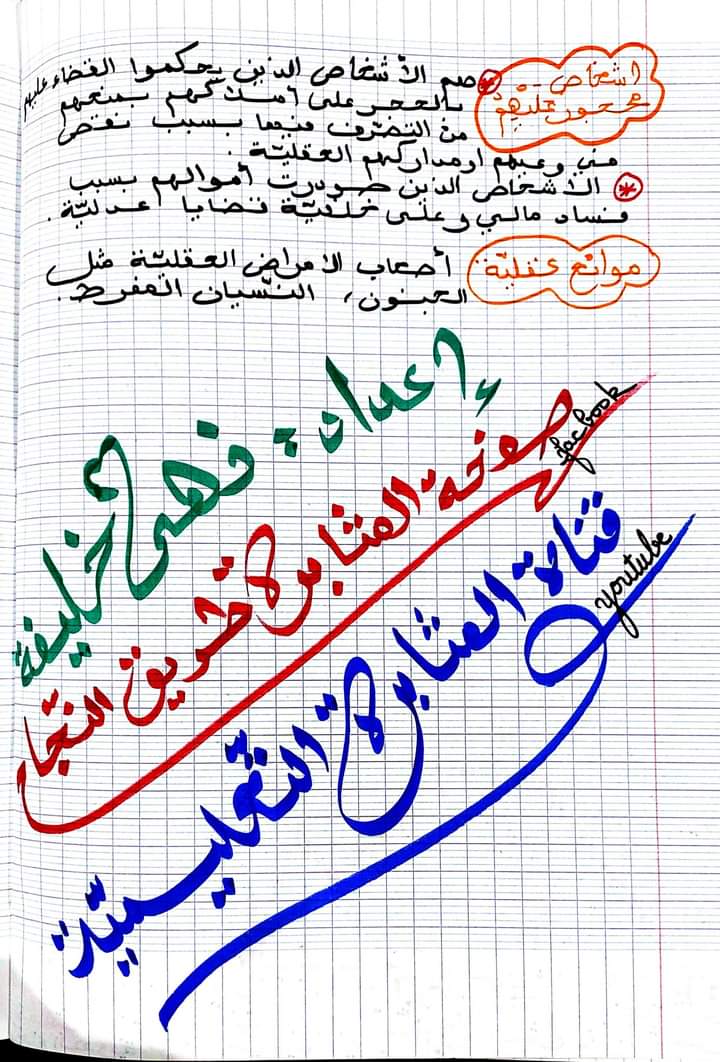 أشخاص
محجور عليهم
* هم الأشخاص الذين يحكموا القضاء عليهم
بالحجر على أملاكهم بمنعهم
من التصرّف فيها بسبب نقص
في وعيهم او مداركهم العقليّة.
* الأشخاص الذين صودرت أموالهم بسبب
فساد مالي وعلى خلفيّة قضايا عدليّة.
موانع عقليّة
أصحاب الامراض العقليّة مثل
الجنون، النّسيان المفرط.
إعداد: نهى خليفة
صفحة المثابرة طريق النجاح
facbook
قناة المثابرة التّعليميّة
youtube